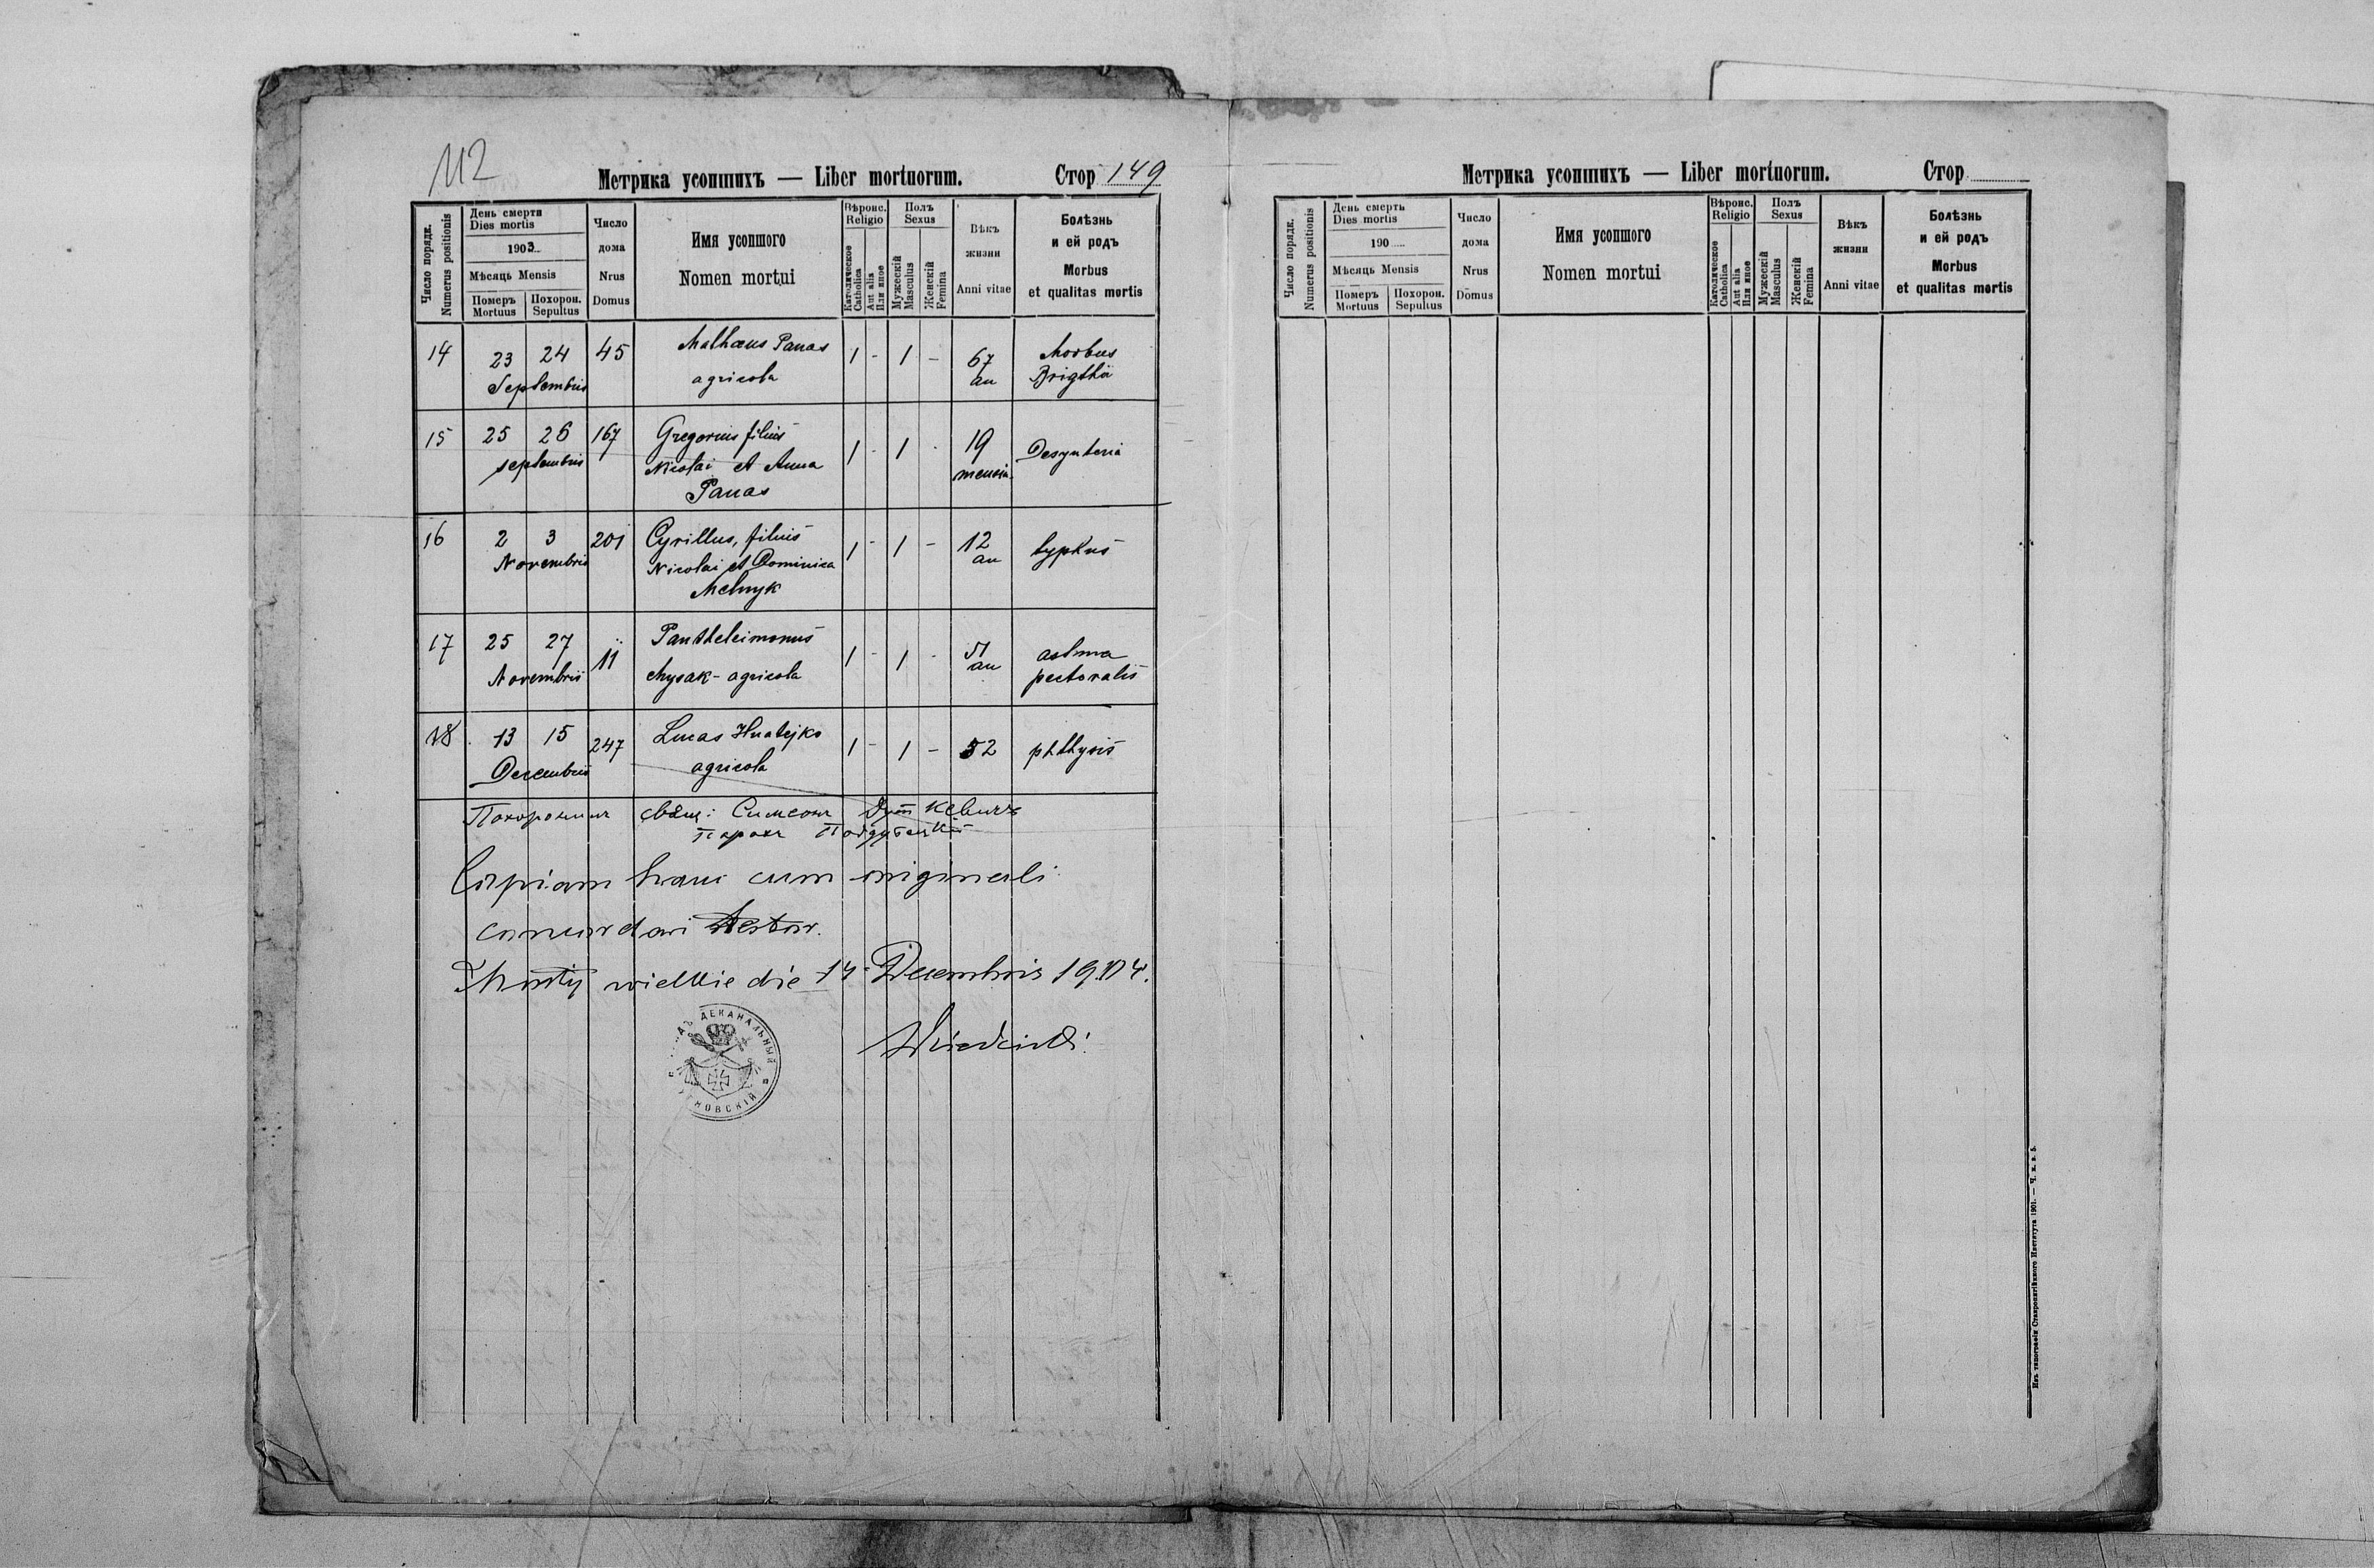 112
Метрика усопшихъ — Liber mortuorum. Стор 149
Число порядк. Numerus positionis
День смерти Dies mortis
1903
Мѣсяць Mensis
Померъ Mortuus
Похорон. Sepultus
Число дома Nrus Domus
Имя усопшого Nomen mortui
Вѣроис. Religio
Католическое Catholica
Aut alia Или иное
Полъ Sexus
Мужескій Masculus
Женскій Femina
Вѣкъ жизни Anni vitae
Болѣзнь и ей родъ Morbus et qualitas mortis
14 23 24 45 Mathaeus Panas 1 - 1 - 67 Morbus
Septembris agricola an Brigthii
15 25 26 167 Gregorius filius 1 - 1 - 19 Desynteria
septembris Nicolai et Anna mensia
Panas
16 2 3 201 Cyrillus, filius 1 - 1 - 12 typhus
Novembris Nicolai et Dominica an
Melnyk
17 25 27 11 Pantheleimonus 1 - 1 - 51 astma
Novembris Mysak - agricola an pectoralis
18 13 15 247 Lucas Hnatejko 1 - 1 - 52 phthysis
Decembris agricola
Похоронилъ свящ: Симеонъ
Парохъ
Copiam hanc cum originali
concordari testor.
wielkie die 14 Decembris 1904.
ДЕКАНАЛЬНЫЙ
Метрика усопшихъ — Liber mortuorum. Стор
Число порядк. Numerus positionis
День смерть Dies mortis
190
Мѣсяць Mensis
Померъ Mortuus
Похорон. Sepultus
Число дома Nrus Domus
Имя усопшого Nomen mortui
Вѣроис. Religio
Католическое Catholica
Aut alia Или иное
Полъ Sexus
Мужескій Masculus
Женскій Femina
Вѣкъ жизни Anni vitae
Болѣзнь и ей родъ Morbus et qualitas mortis
Изъ типографіи Ставропигійского Института 1901. — Ч. н. в. 5.